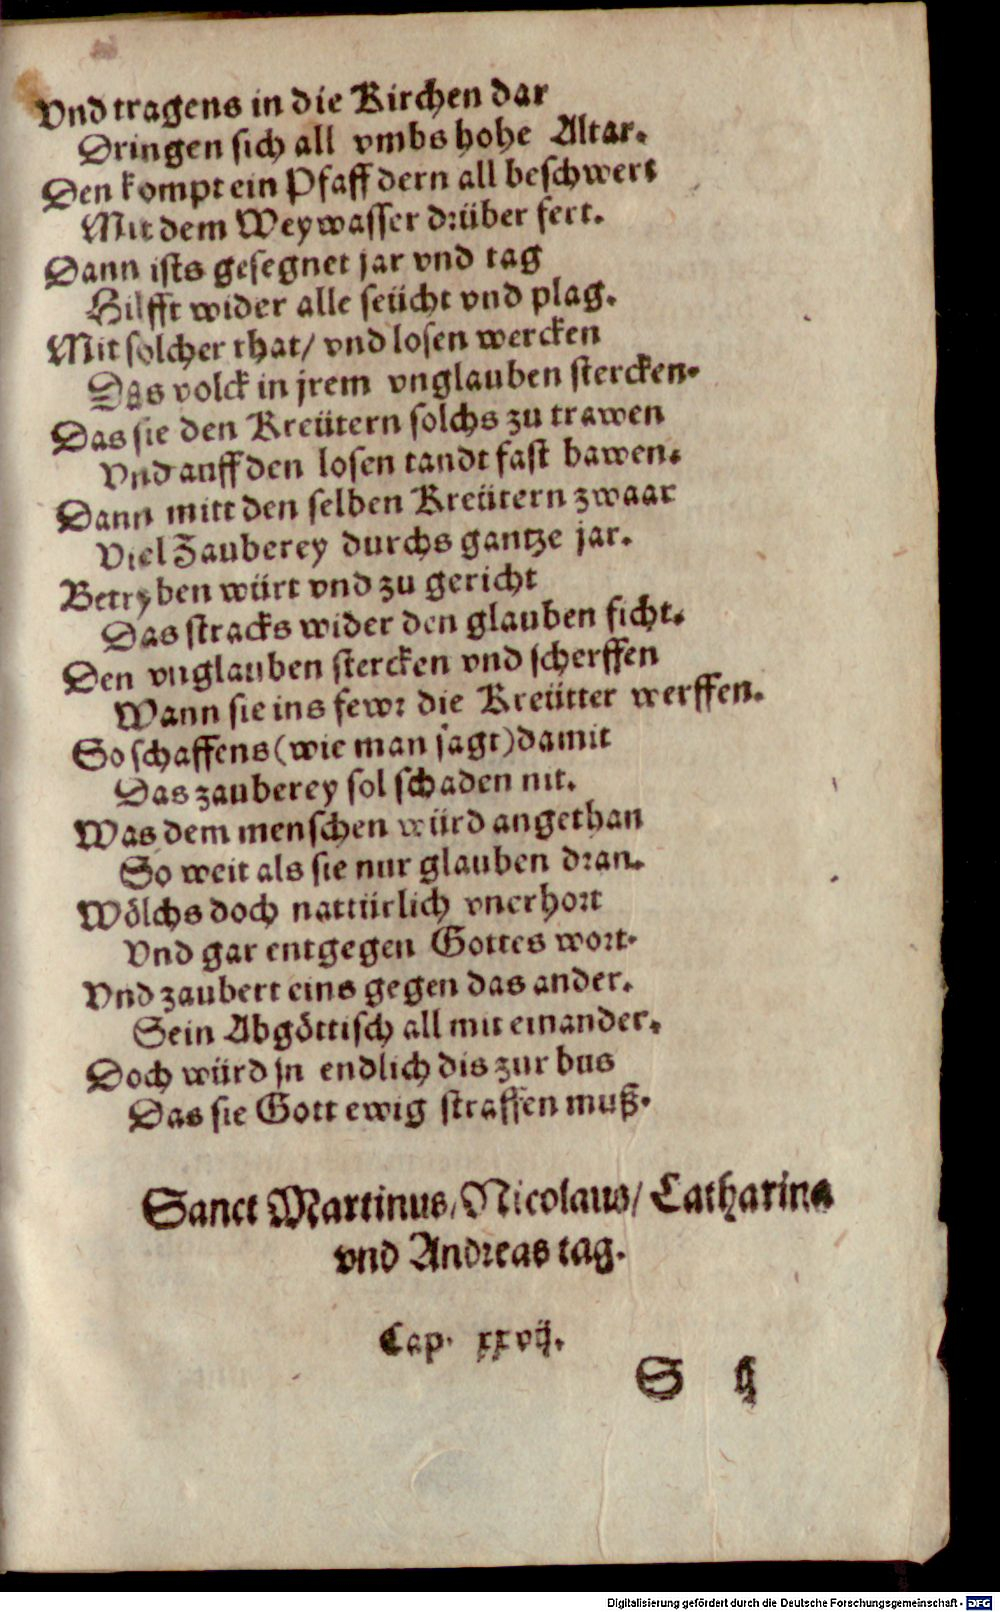 Vnd tragens in die Kirchen dar
Dringen sich all vmbs hohe Altar.
Den kompt ein Pfaff dern all beschwert
Mit dem Weywasser drüber fert.
Dann ists gesegnet jar vnd tag
Hilfft wider alle seücht vnd plag.
Mit solcher that/ vnd losen wercken
Das volck in jrem vnglauben stercken.
Das sie den Kreütern solchs zu trawen
Vnd auff den losen tandt fast bawen.
Dann mitt den selben Kreütern zwaar
Viel Zauberey durchs gantze jar.
Betryben würt vnd zu gericht
Das stracks wider den glauben ficht.
Den vnglauben stercken vnd scherffen
Wann sie ins fewr die Kreütter werffen.
So schaffens (wie man sagt) damit
Das zauberey sol schaden nit.
Was dem menschen würd angethan
So weit als sie nur glauben dran.
Wölchs doch nattürlich vnerhort
Vnd gar entgegen Gottes wort.
Vnd zaubert eins gegen das ander.
Sein Abgöttisch all mit einander.
Doch würd jn endlich dis zur bus
Das sie Gott ewig straffen muß.
Sanct Martinus/ Nicolaus/ Catharina
vnd Andreas tag.
Cap. xxvij.
S ij
Digitalisierung gefördert durch die Deutsche Forschungsgemeinschaft - DFG